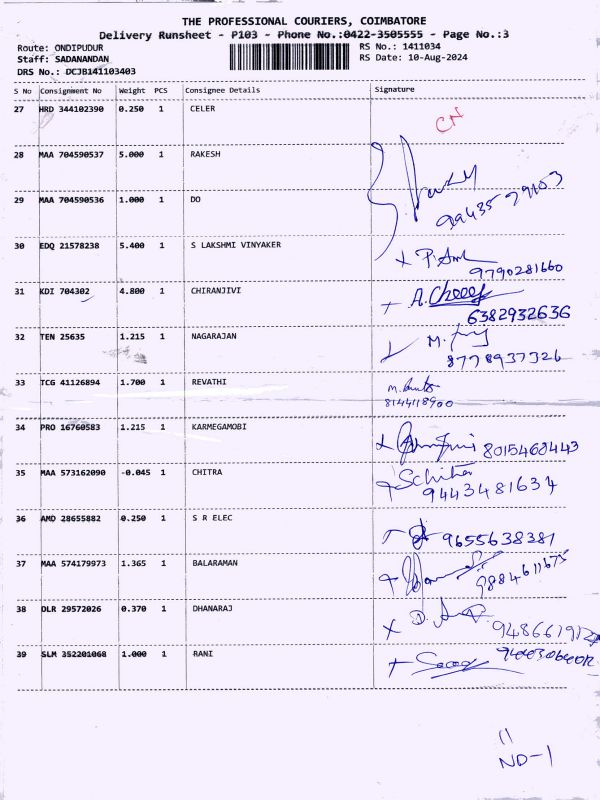 THE PROFESSIONAL COURIERS, COIMBATORE
Delivery Runsheet - P103 - Phone No.:0422-3505555 - Page No.:3
Route: ONDIPUDUR RS No.: 1411034
Staff: SADANANDAN RS Date: 10-Aug-2024
DRS No.: DCJB141103403
S No Consignment No Weight PCS Consignee Details Signature
27 HRD 344102390 0.250 1 CELER CN
28 MAA 704590537 5.000 1 RAKESH
29 MAA 704590536 1.000 1 DO 99435 79103
30 EDQ 21578238 5.400 1 S LAKSHMI VINYAKER
9790281660
31 KDI 704302 4.800 1 CHIRANJIVI
6382932636
32 TEN 25635 1.215 1 NAGARAJAN M.
8778937326
33 TCG 41126894 1.700 1 REVATHI
8144118900
34 PRO 16760583 1.215 1 KARMEGAMOBI
8015468443
35 MAA 573162090 -0.045 1 CHITRA Schitra
9443481634
36 AMD 28655882 0.250 1 S R ELEC
9655638381
37 MAA 574179973 1.365 1 BALARAMAN
9884611675
38 DLR 29572026 0.370 1 DHANARAJ D.
39 SLM 352201068 1.000 1 RANI
11
ND-1